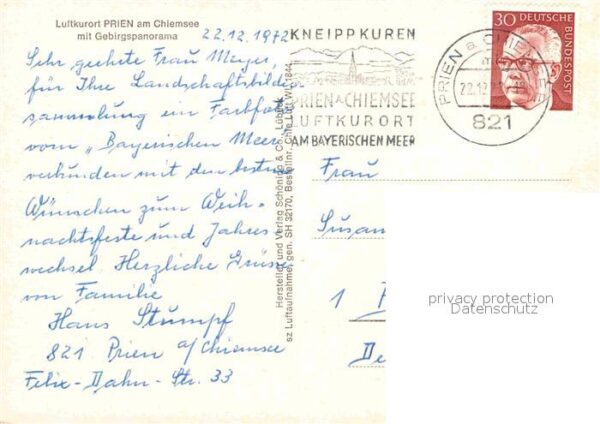 Luftkurort PRIEN am Chiemsee
mit Gebirgspanorama
22.12.1972
Sehr geehrte Frau Meyer,
für Ihre Landschaftsbilder-
sammlung ein Farbfoto
vom „Bayerischen Meer"
verbunden mit den besten
Wünschen zum Weih-
nachtsfeste und Jahres
wechsel. Herzliche Grüsse
von Familie
Hans Stumpf
821 Prien a/Chiemsee
Felix-Dahn-Str. 33
Hersteller und Verlag Schöning & Co., Lübeck
sz Luftaufnahme, gen. SH 32170, Bestellnr. Chie Luft W 1844
KNEIPPKUREN
PRIEN A CHIEMSEE
LUFTKURORT
AM BAYERISCHEN MEER
PRIEN a. CHIEMSEE
22.12.
821
30 DEUTSCHE
BUNDESPOST
Frau
Susan
1
privacy protection
Datenschutz